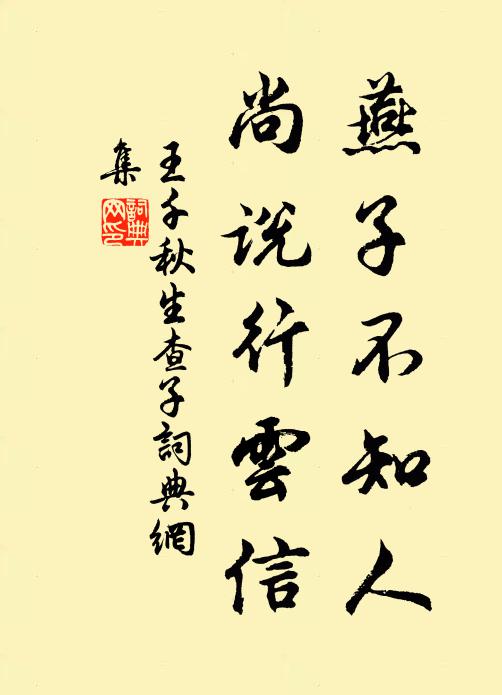 燕子不知人
尚説行雲信
王千秋生查子詞典網
集
詞典網印